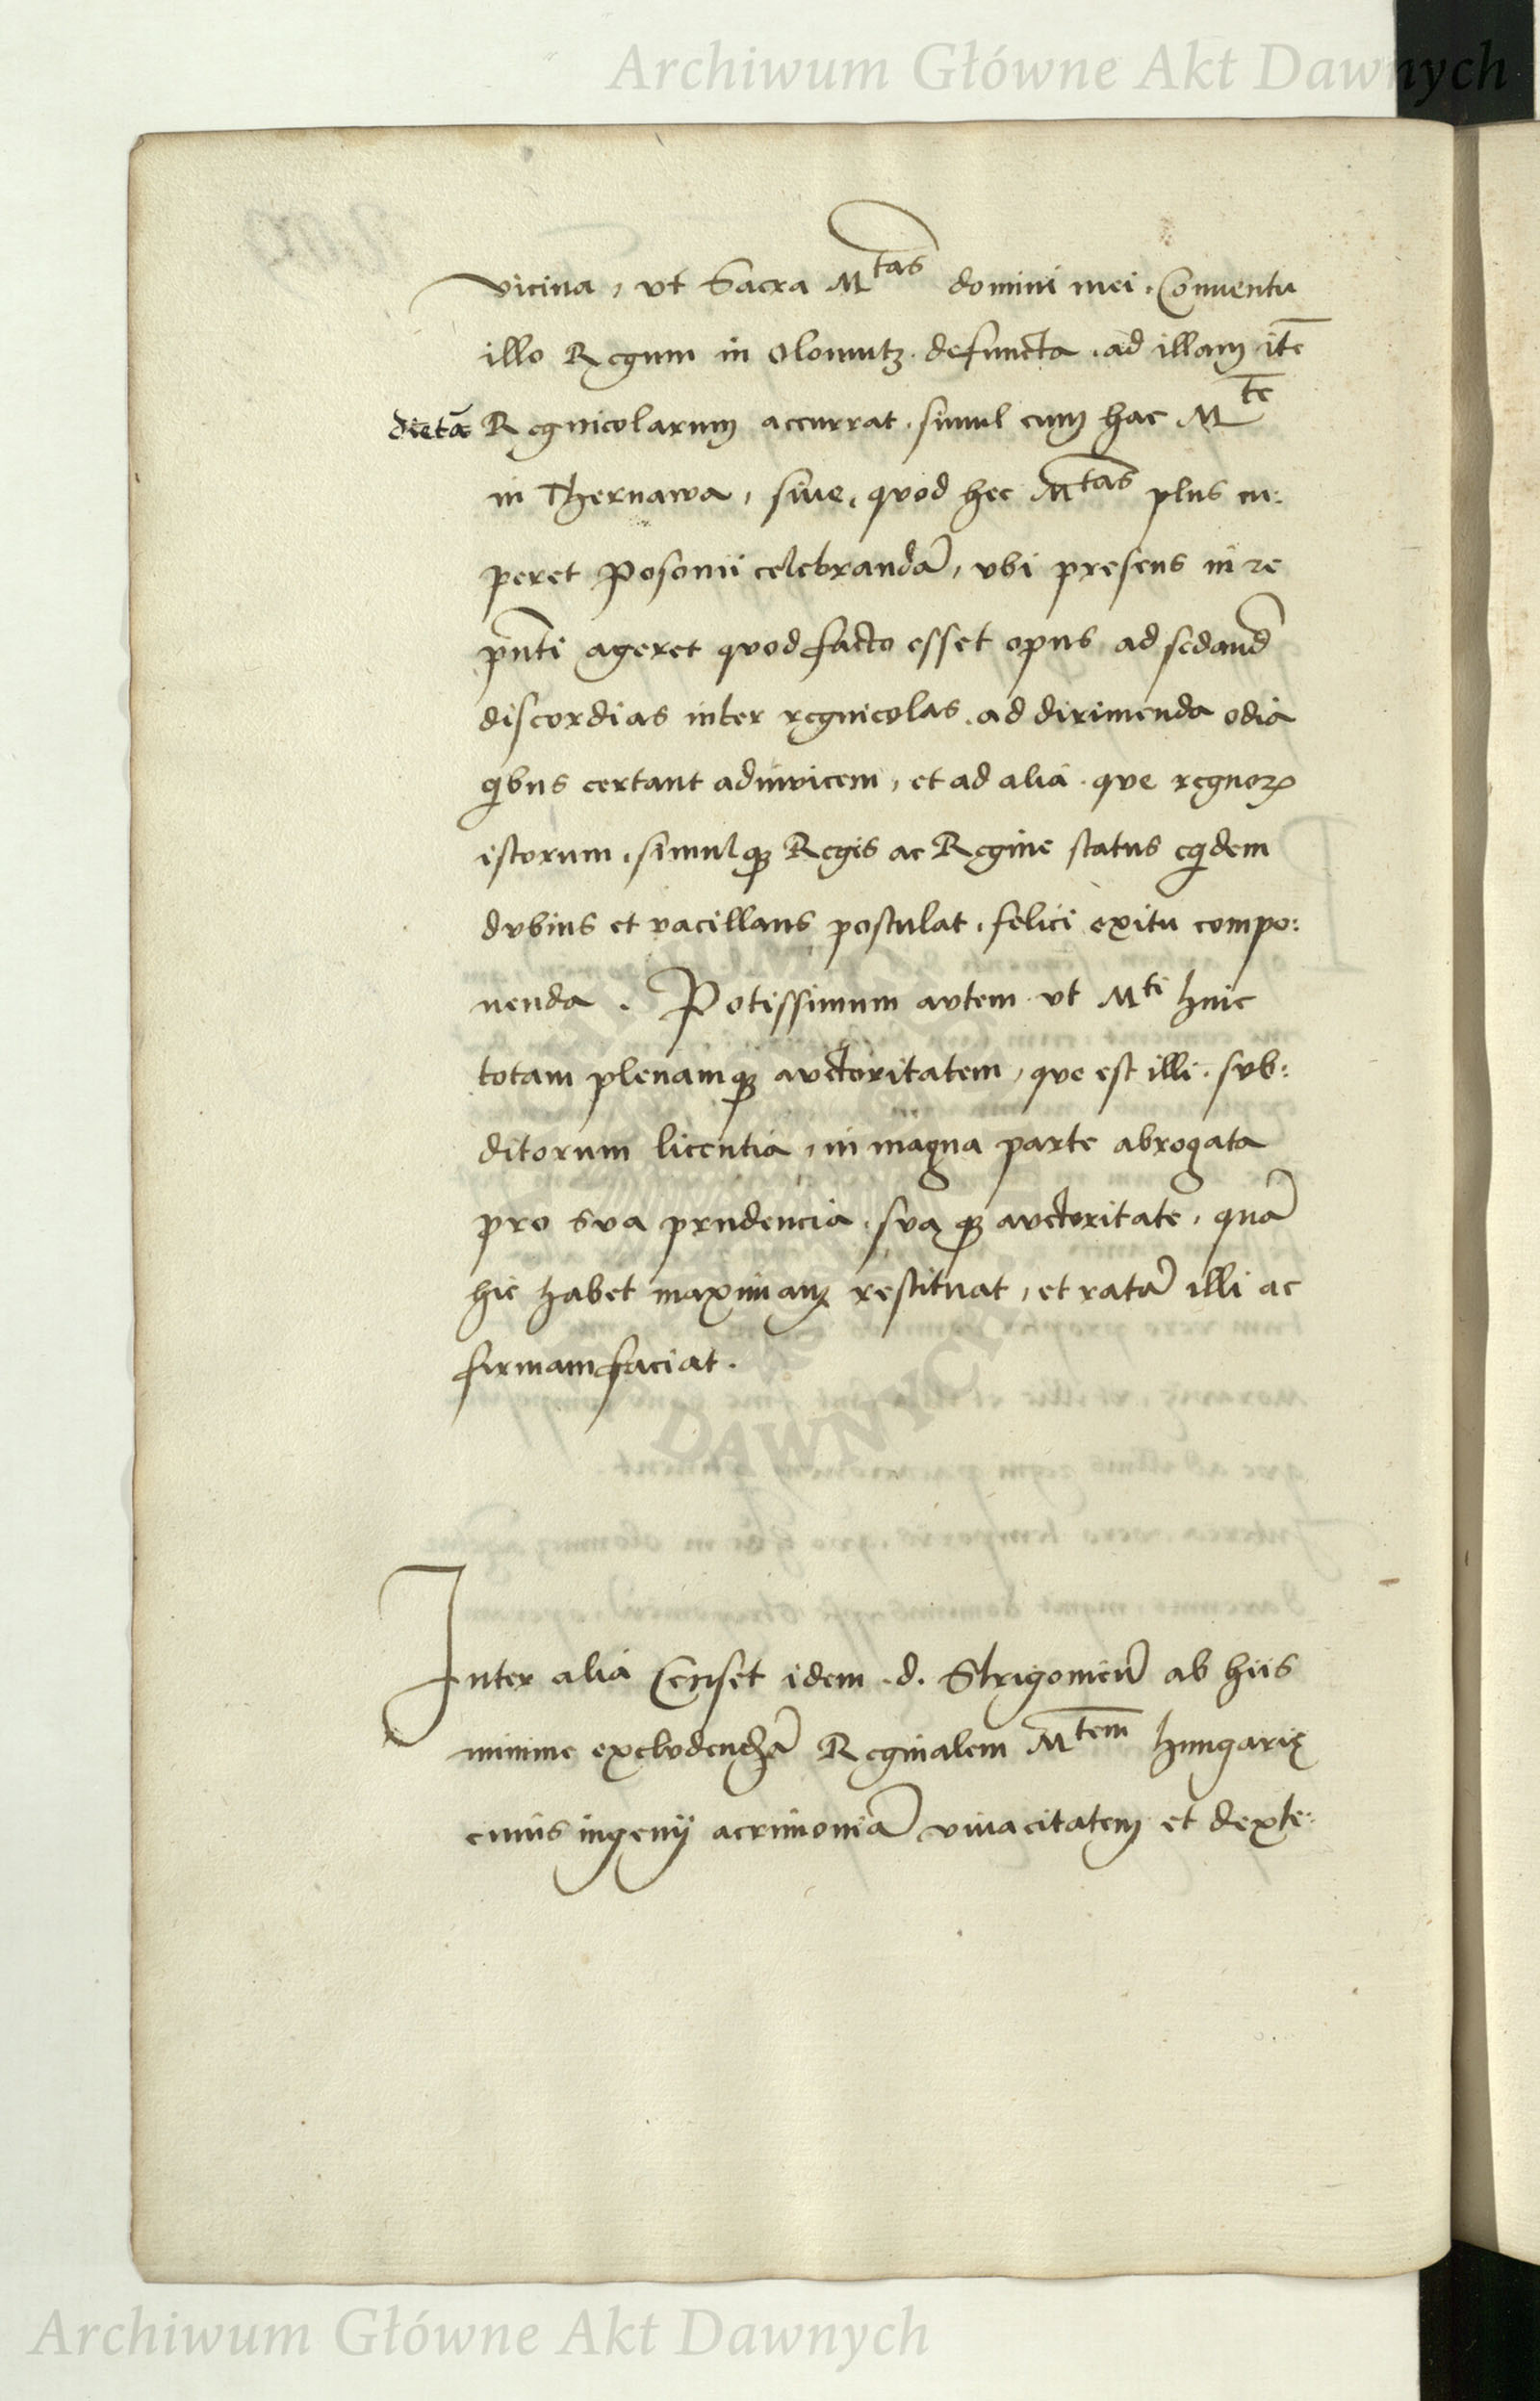 Archiwum Główne Akt Dawnych
vicina, vt Sacra M^tas domini mei. Conuentu
illo Regum in Olomutz. defuncta. ad illam ite
dietā Regnicolarum accurrat. simul cum hac M^te
in Thernawa, siue, quod hec M^tas plus cu:
peret Posonii celebrandā, vbi presens in re
pn̄ti ageret quod facto esset opus ad sedand
discordias inter regnicolas. ad dirimenda odia
qibus certant adinuicem, et ad alia. que regnoꝝ
istorum. simulqꝫ Regis ac Regine status eqidem
dvbius et vacillans postulat. felici exitu compo:
nenda. Potissimum avtem vt M^ti huic
totam plenamqꝫ avctoritatem, qve est illi. svb:
ditorum licentia, in magna parte abrogata
pro sva prudencia. svaqꝫ avctoritate, quā
hic habet maximam restituat, et ratā illi ac
firmam faciat.
Inter alia Censet idem .d. Strigonień ab hiis
minime exclvdendā Reginalem M^tem hungarię
cuius ingenij acrimoniā viuacitatem et dexte:
ARCHIWUM GŁÓWNE AKT DAWNYCH
Archiwum Główne Akt Dawnych